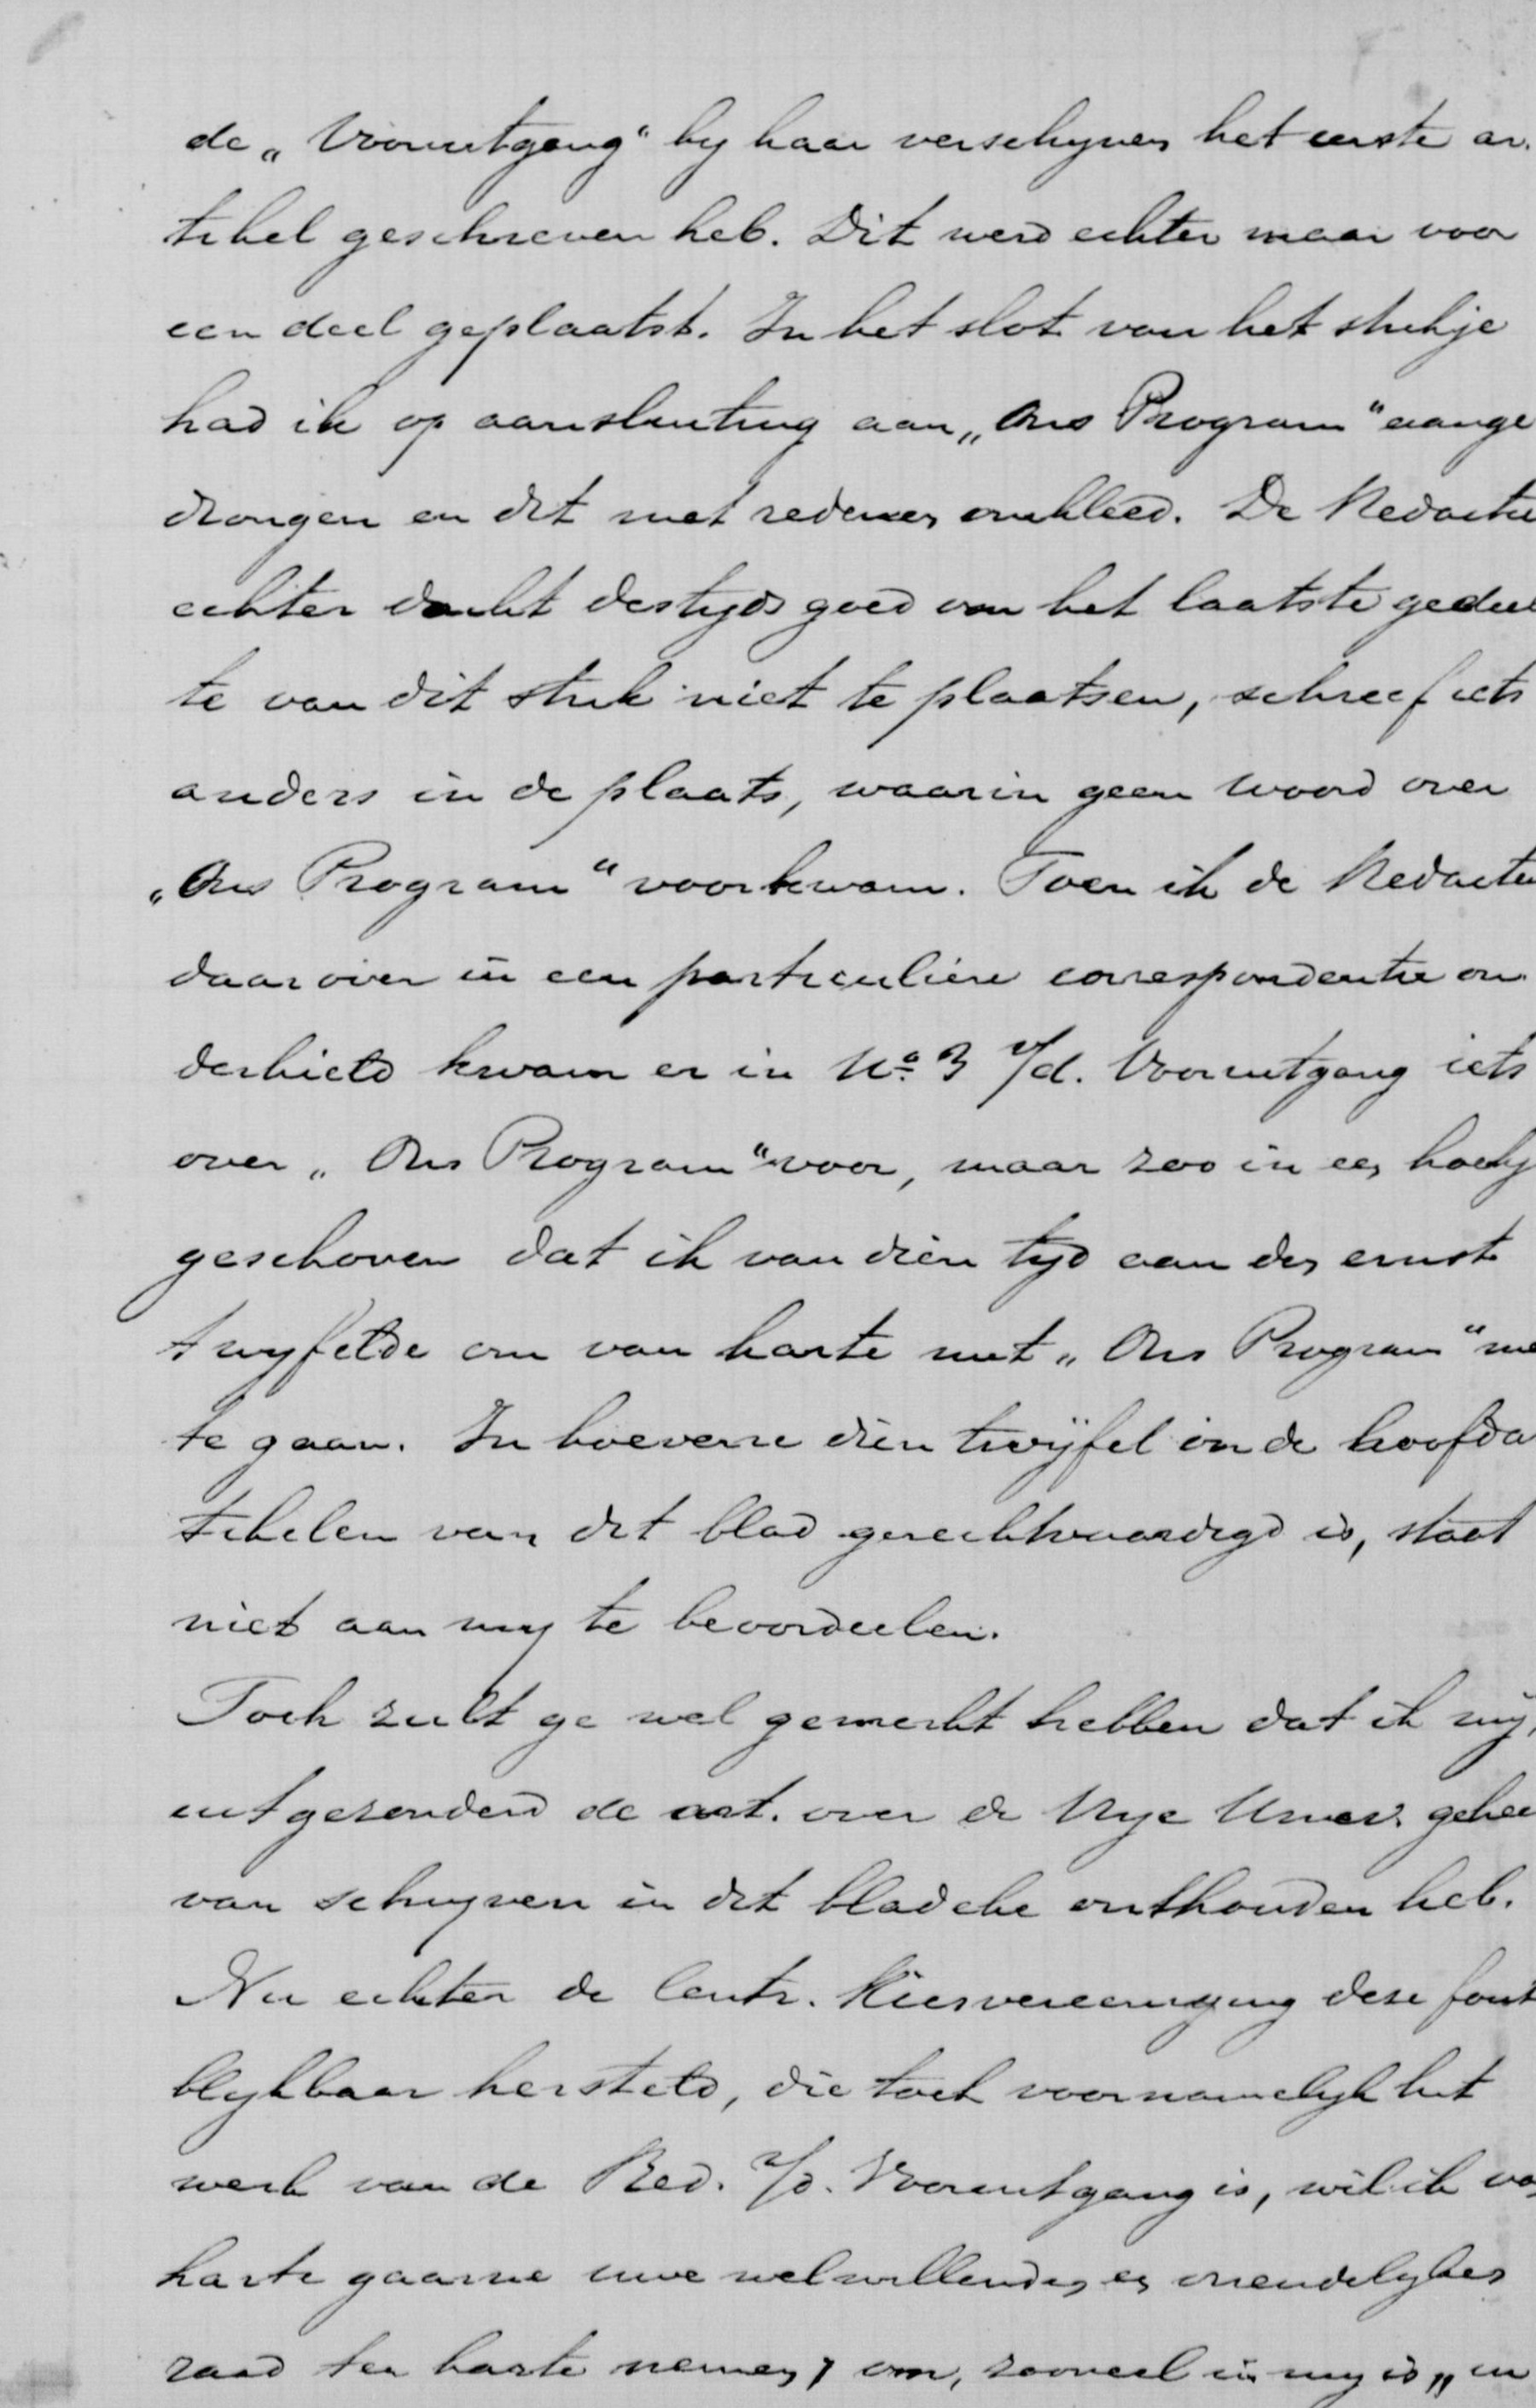 de „Vooruitgang“ by haar verschynen het eerste ar-
tikel geschreven heb. Dit werd echter maar voor
een deel geplaatst. In het slot van het stukje
had ik op aansluiting aan „Ons Program“ aange
drongen en dit met redenen omkleed. De Redactie
echter dacht destyds goed om het laatste gedeel
te van dit stuk niet te plaatsen, schreef iets
anders in de plaats, waarin geen woord over
„Ons Program“ voorkwam. Toen ik de Redactie
daarover in een particuliere correspondentie on
derhield kwam er in No. 3 v/d. Vooruitgang iets
over „Ons Program“ voor, maar zoo in een hoekj
geschoven dat ik van dien tyd aan den ernst
twyfelde om van harte met „Ons Program“ me
te gaan. In hoeverre dien twijfel in de hoofda
tikelen van dit blad gerechtvaardigd is, staat
niet aan my te beoordeelen.
Toch zult ge wel gemerkt hebben dat ik mij,
uitgezonderd de art. over de Vrye Univer. gehee
van schryven in dit bladdeke onthouden heb.
Nu echter de Centr. Kiesvereeniging deze fout
blykbaar hersteld, die toch voornamelyk het
werk van de Red. v/d. Vooruitgang is, wil ik van
harte gaarne uwe welwillenden en vriendelyken
raad ter harte nemen, om, zooveel in my is „in